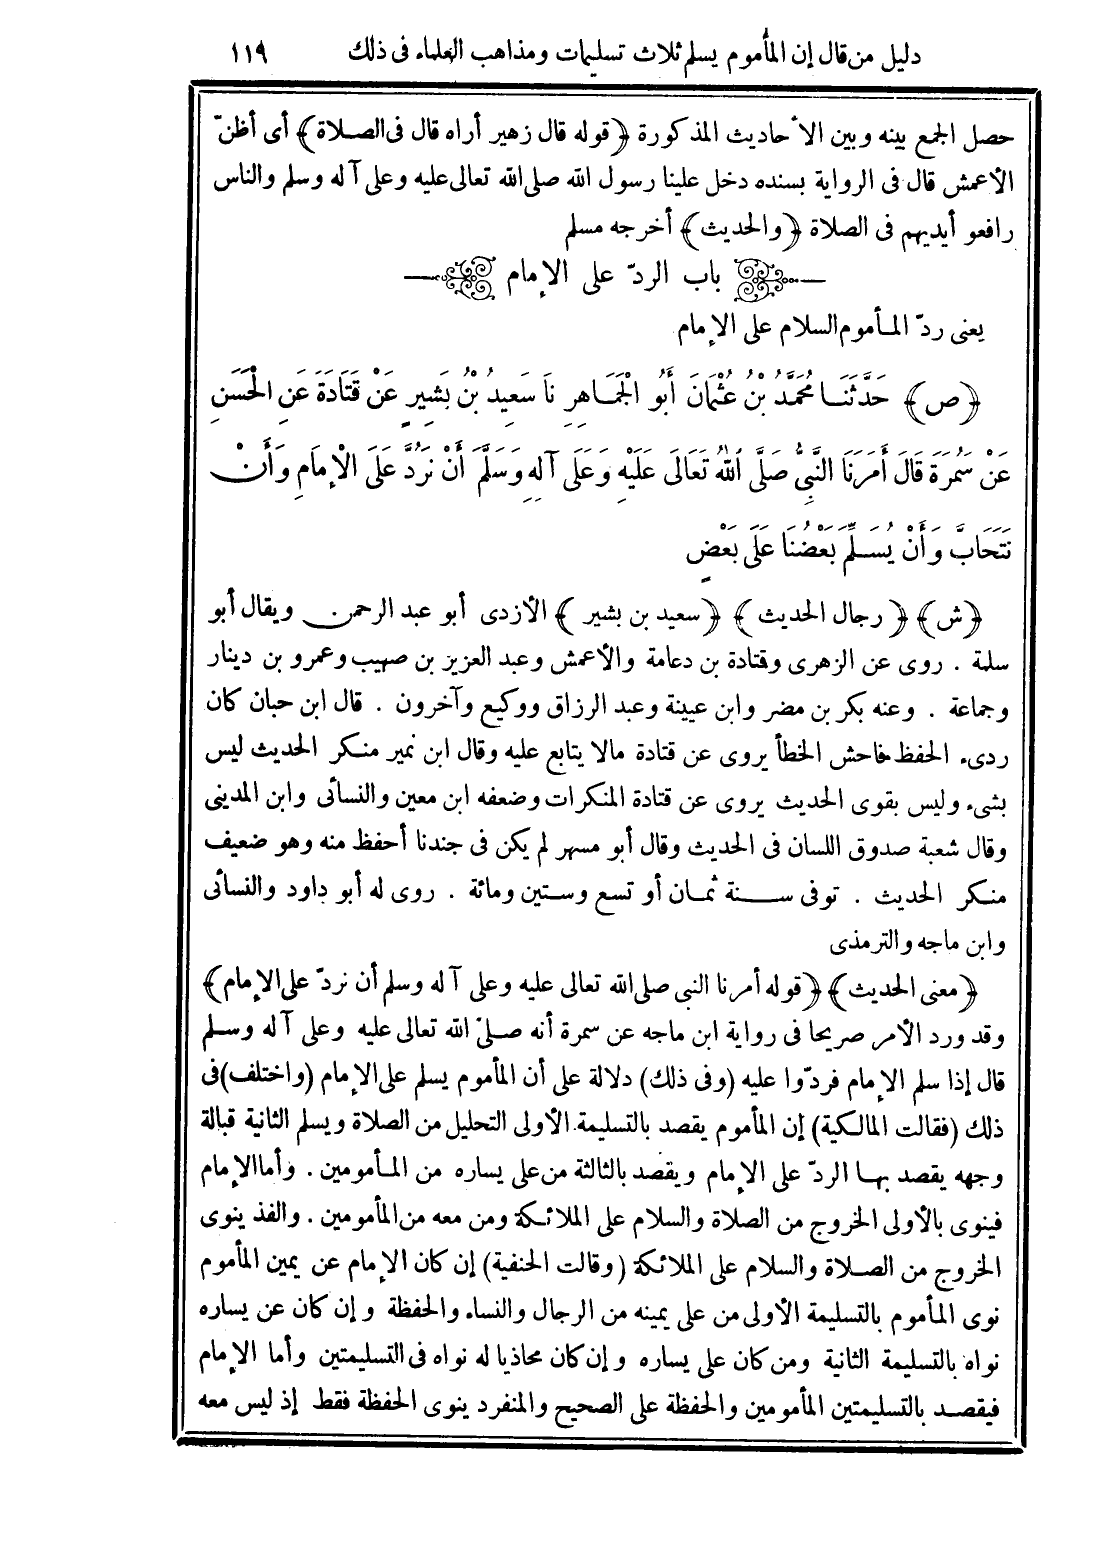 دليل من قال إن المأموم يسلم ثلاث تسليمات ومذاهب العلماء فى ذلك ١١٩
حصل الجمع بينه وبين الأحاديث المذكورة ﴿قوله قال زهير أراه قال فى الصلاة﴾ أى أظنّ
الأعمش قال فى الرواية بسنده دخل علينا رسول الله صلى الله تعالى عليه وعلى آله وسلم والناس
رافعو أيديهم فى الصلاة ﴿والحديث﴾ أخرجه مسلم
باب الردّ على الإمام
يعنى ردّ المأموم السلام على الإمام
﴿ص﴾ حَدَّثَنَا مُحَمَّدُ بْنُ عُثْمَانَ أَبُو الْجَمَاهِرِ نَا سَعِيدُ بْنُ بَشِيرٍ عَنْ قَتَادَةَ عَنِ الْحَسَنِ
عَنْ سَمُرَةَ قَالَ أَمَرَنَا النَّبِىُّ صَلَّى اللهُ تَعَالَى عَلَيْهِ وَعَلَى آلِهِ وَسَلَّمَ أَنْ نَرُدَّ عَلَى الْإِمَامِ وَأَنْ
نَتَحَابَّ وَأَنْ يُسَلِّمَ بَعْضُنَا عَلَى بَعْضٍ
﴿ش﴾ ﴿رجال الحديث﴾ ﴿سعيد بن بشير﴾ الأزدى أبو عبد الرحمن . ويقال أبو
سلمة . روى عن الزهرى وقتادة بن دعامة والأعمش وعبد العزيز بن صهيب وعمرو بن دينار
وجماعة . وعنه بكر بن مضر وابن عيينة وعبد الرزاق ووكيع وآخرون . قال ابن حبان كان
ردىء الحفظ فاحش الخطأ يروى عن قتادة مالا يتابع عليه وقال ابن نمير منكر الحديث ليس
بشىء وليس بقوى الحديث يروى عن قتادة المنكرات وضعفه ابن معين والنسائى وابن المدينى
وقال شعبة صدوق اللسان فى الحديث وقال أبو مسهر لم يكن فى جندنا أحفظ منه وهو ضعيف
منكر الحديث . توفى سنة ثمان أو تسع وستين ومائة . روى له أبو داود والنسائى
وابن ماجه والترمذى
﴿معنى الحديث﴾ ﴿قوله أمرنا النبى صلى الله تعالى عليه وعلى آله وسلم أن نردّ على الإمام﴾
وقد ورد الأمر صريحا فى رواية ابن ماجه عن سمرة أنه صلىّ الله تعالى عليه وعلى آله وسلم
قال إذا سلم الإمام فردّوا عليه (وفى ذلك) دلالة على أن المأموم يسلم على الإمام (واختلف) فى
ذلك (فقالت المالكية) إن المأموم يقصد بالتسليمة الأولى التحليل من الصلاة ويسلم الثانية قبالة
وجهه يقصد بها الردّ على الإمام ويقصد بالثالثة من على يساره من المأمومين . وأما الإمام
فينوى بالأولى الخروج من الصلاة والسلام على الملائكة ومن معه من المأمومين . والفذ ينوى
الخروج من الصلاة والسلام على الملائكة (وقالت الحنفية) إن كان الإمام عن يمين المأموم
نوى المأموم بالتسليمة الأولى من على يمينه من الرجال والنساء والحفظة وإن كان عن يساره
نواه بالتسليمة الثانية ومن كان على يساره وإن كان محاذيا له نواه فى التسليمتين وأما الإمام
فيقصد بالتسليمتين المأمومين والحفظة على الصحيح والمنفرد ينوى الحفظة فقط إذ ليس معه